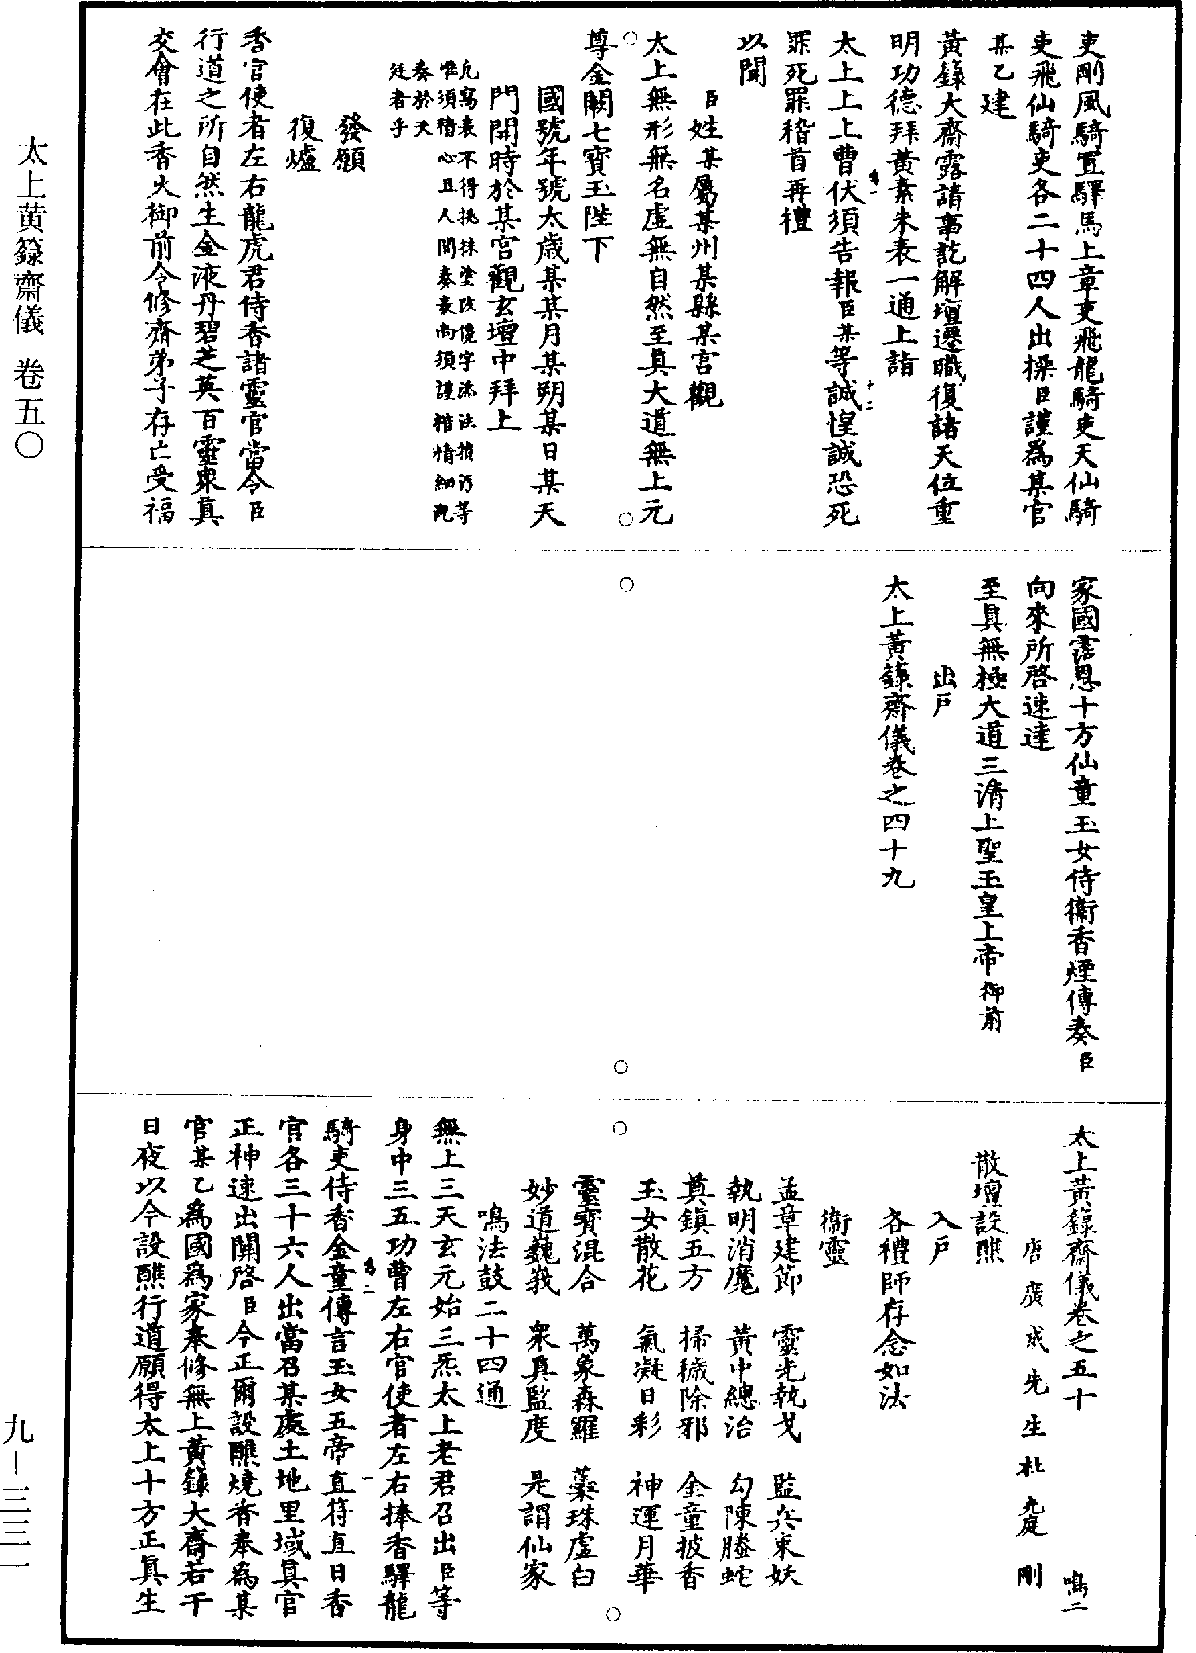 吏剛風騎置驛馬上章吏飛龍騎吏天仙騎
吏飛仙騎吏各二十四人出操臣謹爲某官
某乙建
黃籙大齋露諸事訖解壇遷職復諸天位重
明功德拜黃素朱表一通上詣
太上上上曹伏須告報臣某等誠惶誠恐死
罪死罪稽首再禮
以聞
臣姓某屬某州某縣某宮觀
太上無形無名虛無自然至真大道無上元
尊金闕七寶玉陛下
國號年號太歲某某月某朔某日某天
門開時於某宮觀玄壇中拜上
凡寫表不得挑抹塗改儳字添注損污等
惟須精心且人間奏表尚須謹楷情細況
奏於天
廷者乎
發願
復爐
香官使者左右龍虎君侍香諸靈官當令臣
行道之所自然生金液丹碧芝英百靈衆真
交會在此香火御前令修齋弟子存亡受福
家國霑恩十方仙童玉女侍衛香煙傳奏臣
向來所啓速達
至真無極大道三清上聖玉皇上帝御前
出戶
太上黃籙齋儀卷之四十九
太上黃籙齋儀卷之五十 鳴二
唐廣成先生杜光庭刪
散壇設醮
入戶
各禮師存念如法
衞靈
孟章建節 靈光執戈 監兵束妖
執明消魔 黃中總治 勾陳螣蛇
真鎮五方 掃穢除邪 金童披香
玉女散花 氣凝日彩 神運月華
靈寶混合 萬象森羅 蘂珠虛白
妙道巍峩 衆真監度 是謂仙家
鳴法鼓二十四通
無上三天玄元始三炁太上老君召出臣等
身中三五功曹左右官使者左右捧香驛龍
騎吏侍香金童傳言玉女五帝直符直日香
官各三十六人出當召某處土地里域真官
正神速出關啓臣今正爾設醮燒香奉爲某
官某乙爲國爲家奉修無上黃籙大齋若干
日夜以今設醮行道願得太上十方正真生
太上黄籙齋儀 卷五〇
九—三三一